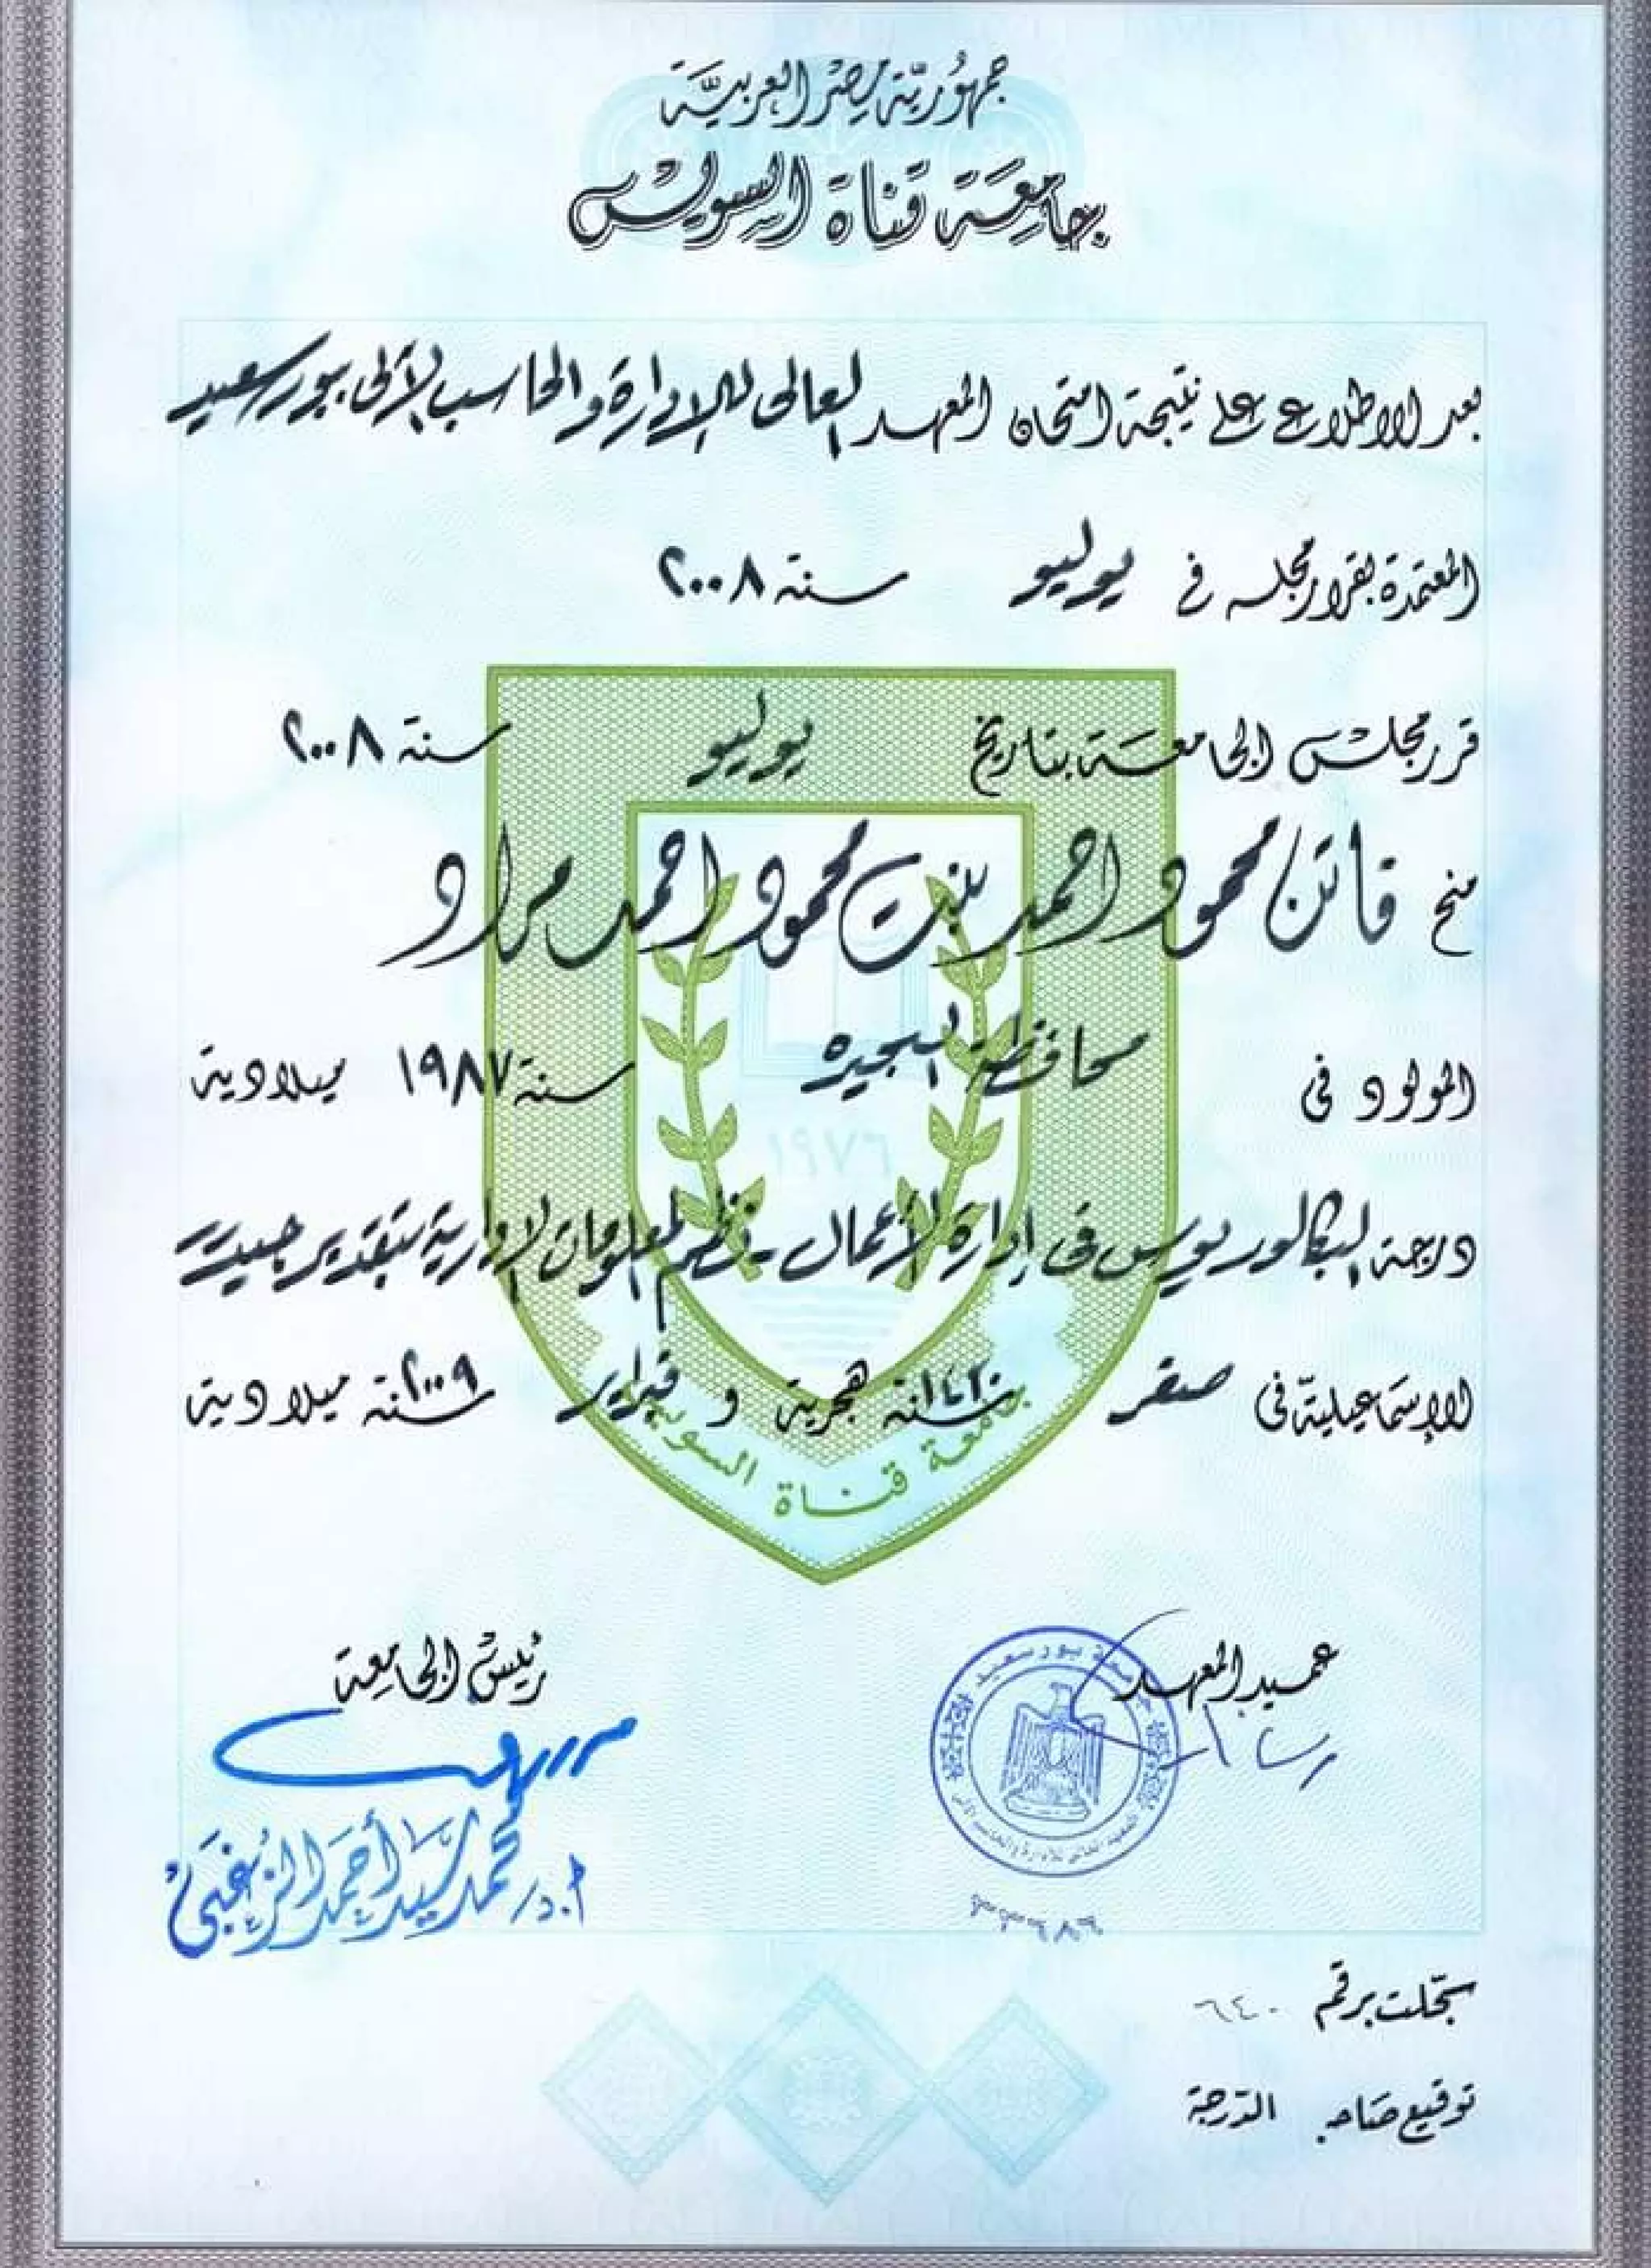 جمهورية مصر العربية
جامعة قناة السويس
بعد الاطلاع على نتيجة امتحان المعهد العالى للإدارة والحاسب الآلى ببورسعيد
المعتمدة بقرار مجلسه فى يوليو سنة ٢٠٠٨
قرر مجلس الجامعة بتاريخ يوليو سنة ٢٠٠٨
منح فاتن محمود احمد بنت محمود احمد مراد
المولود فى محافظة البحيرة سنة ١٩٨٧ ميلادية
١٩٧٦
درجة البكالوريوس فى إدارة الأعمال - نظم المعلومات الإدارية بتقدير جيد
الإسماعيلية فى صفر سنة ١٤٣٠ هجرية و فبراير سنة ٢٠٠٩ ميلادية
جامعة قناة السويس
عميد المعهد
رئيس الجامعة
أ.د. محمد سيد أحمد الزغبى
بورسعيد
المعهد العالى للإدارة والحاسب الآلى
سجلت برقم ٦٤٠
توقيع صاحب الدرجة